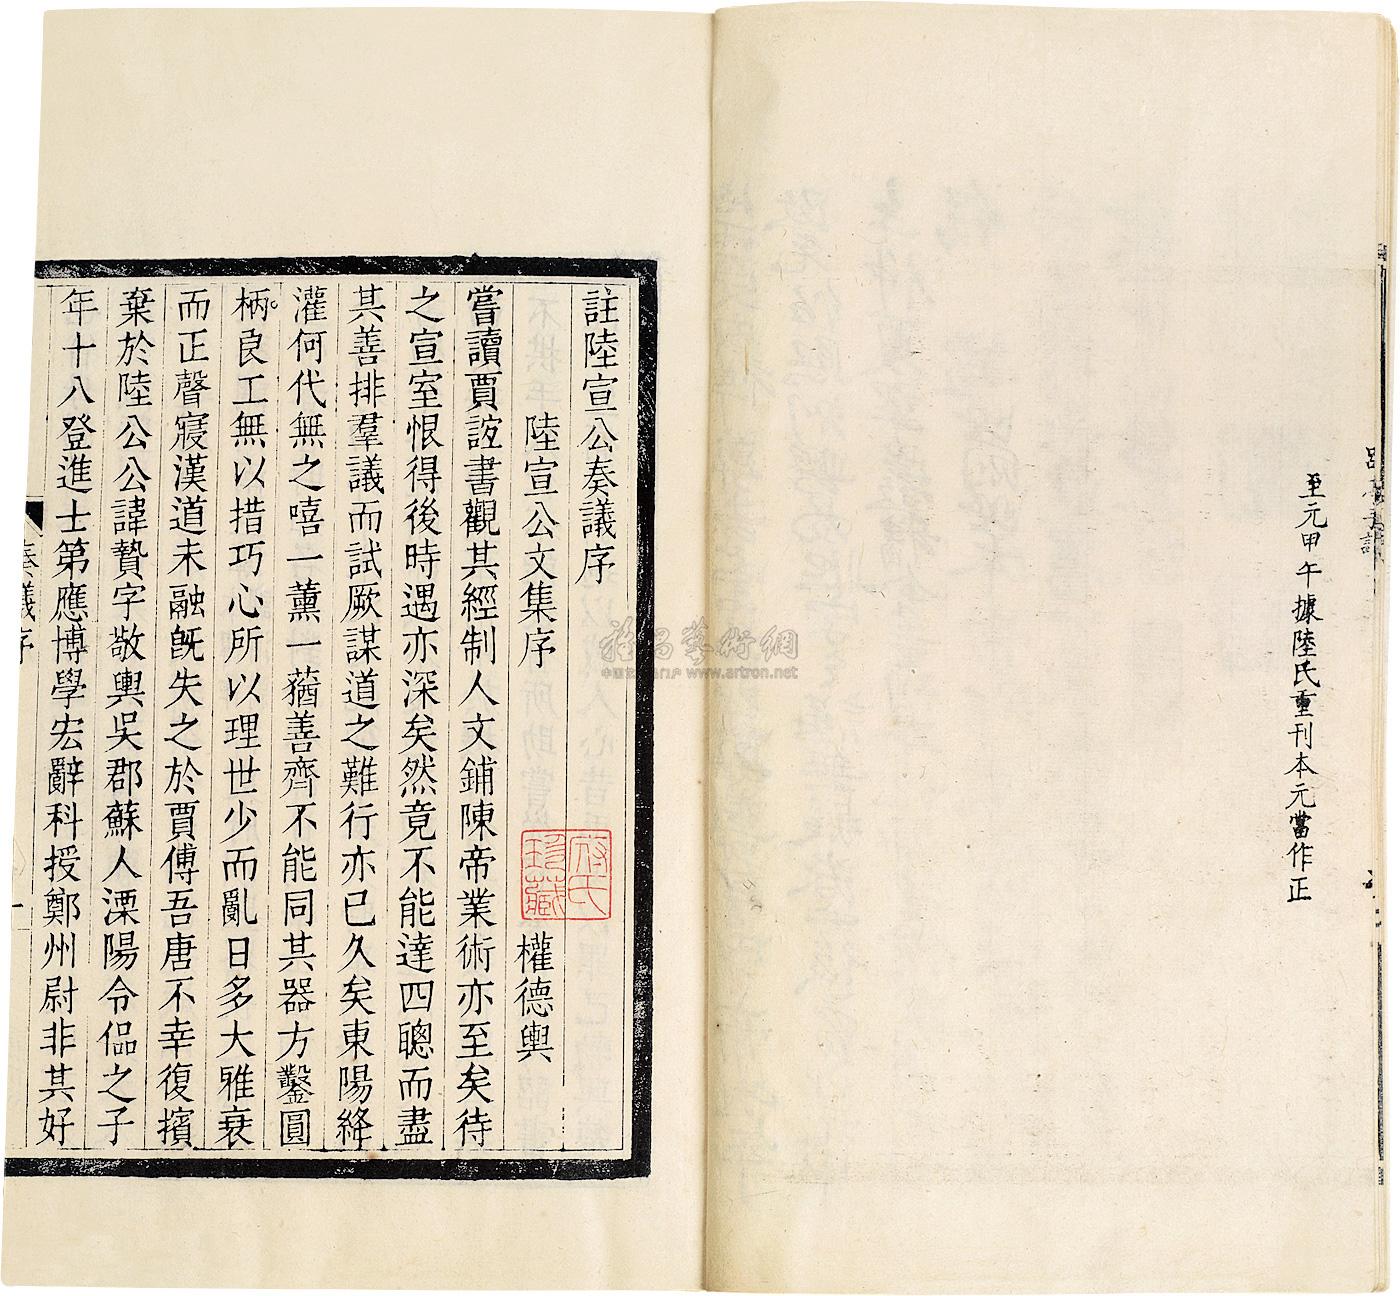 至元甲午據陸氏重刊本元當作正
註陸宣公奏議序
陸宣公文集序
權德輿
嘗讀賈誼書觀其經制人文鋪陳帝業術亦至矣待
之宣室恨得後時遇亦深矣然竟不能達四聰而盡
其善排羣議而試厥謀道之難行亦已久矣東陽絳
灌何代無之嘻一薰一蕕善齊不能同其器方鑿圓
枘良工無以措巧心所以理世少而亂日多大雅衰
而正聲寢漢道未融旣失之於賈傅吾唐不幸復擯
棄於陸公公諱贄字敬輿吳郡蘇人溧陽令偘之子
年十八登進士第應博學宏辭科授鄭州尉非其好
奏議序
一
珍藏
雅昌藝術網
www.artron.net